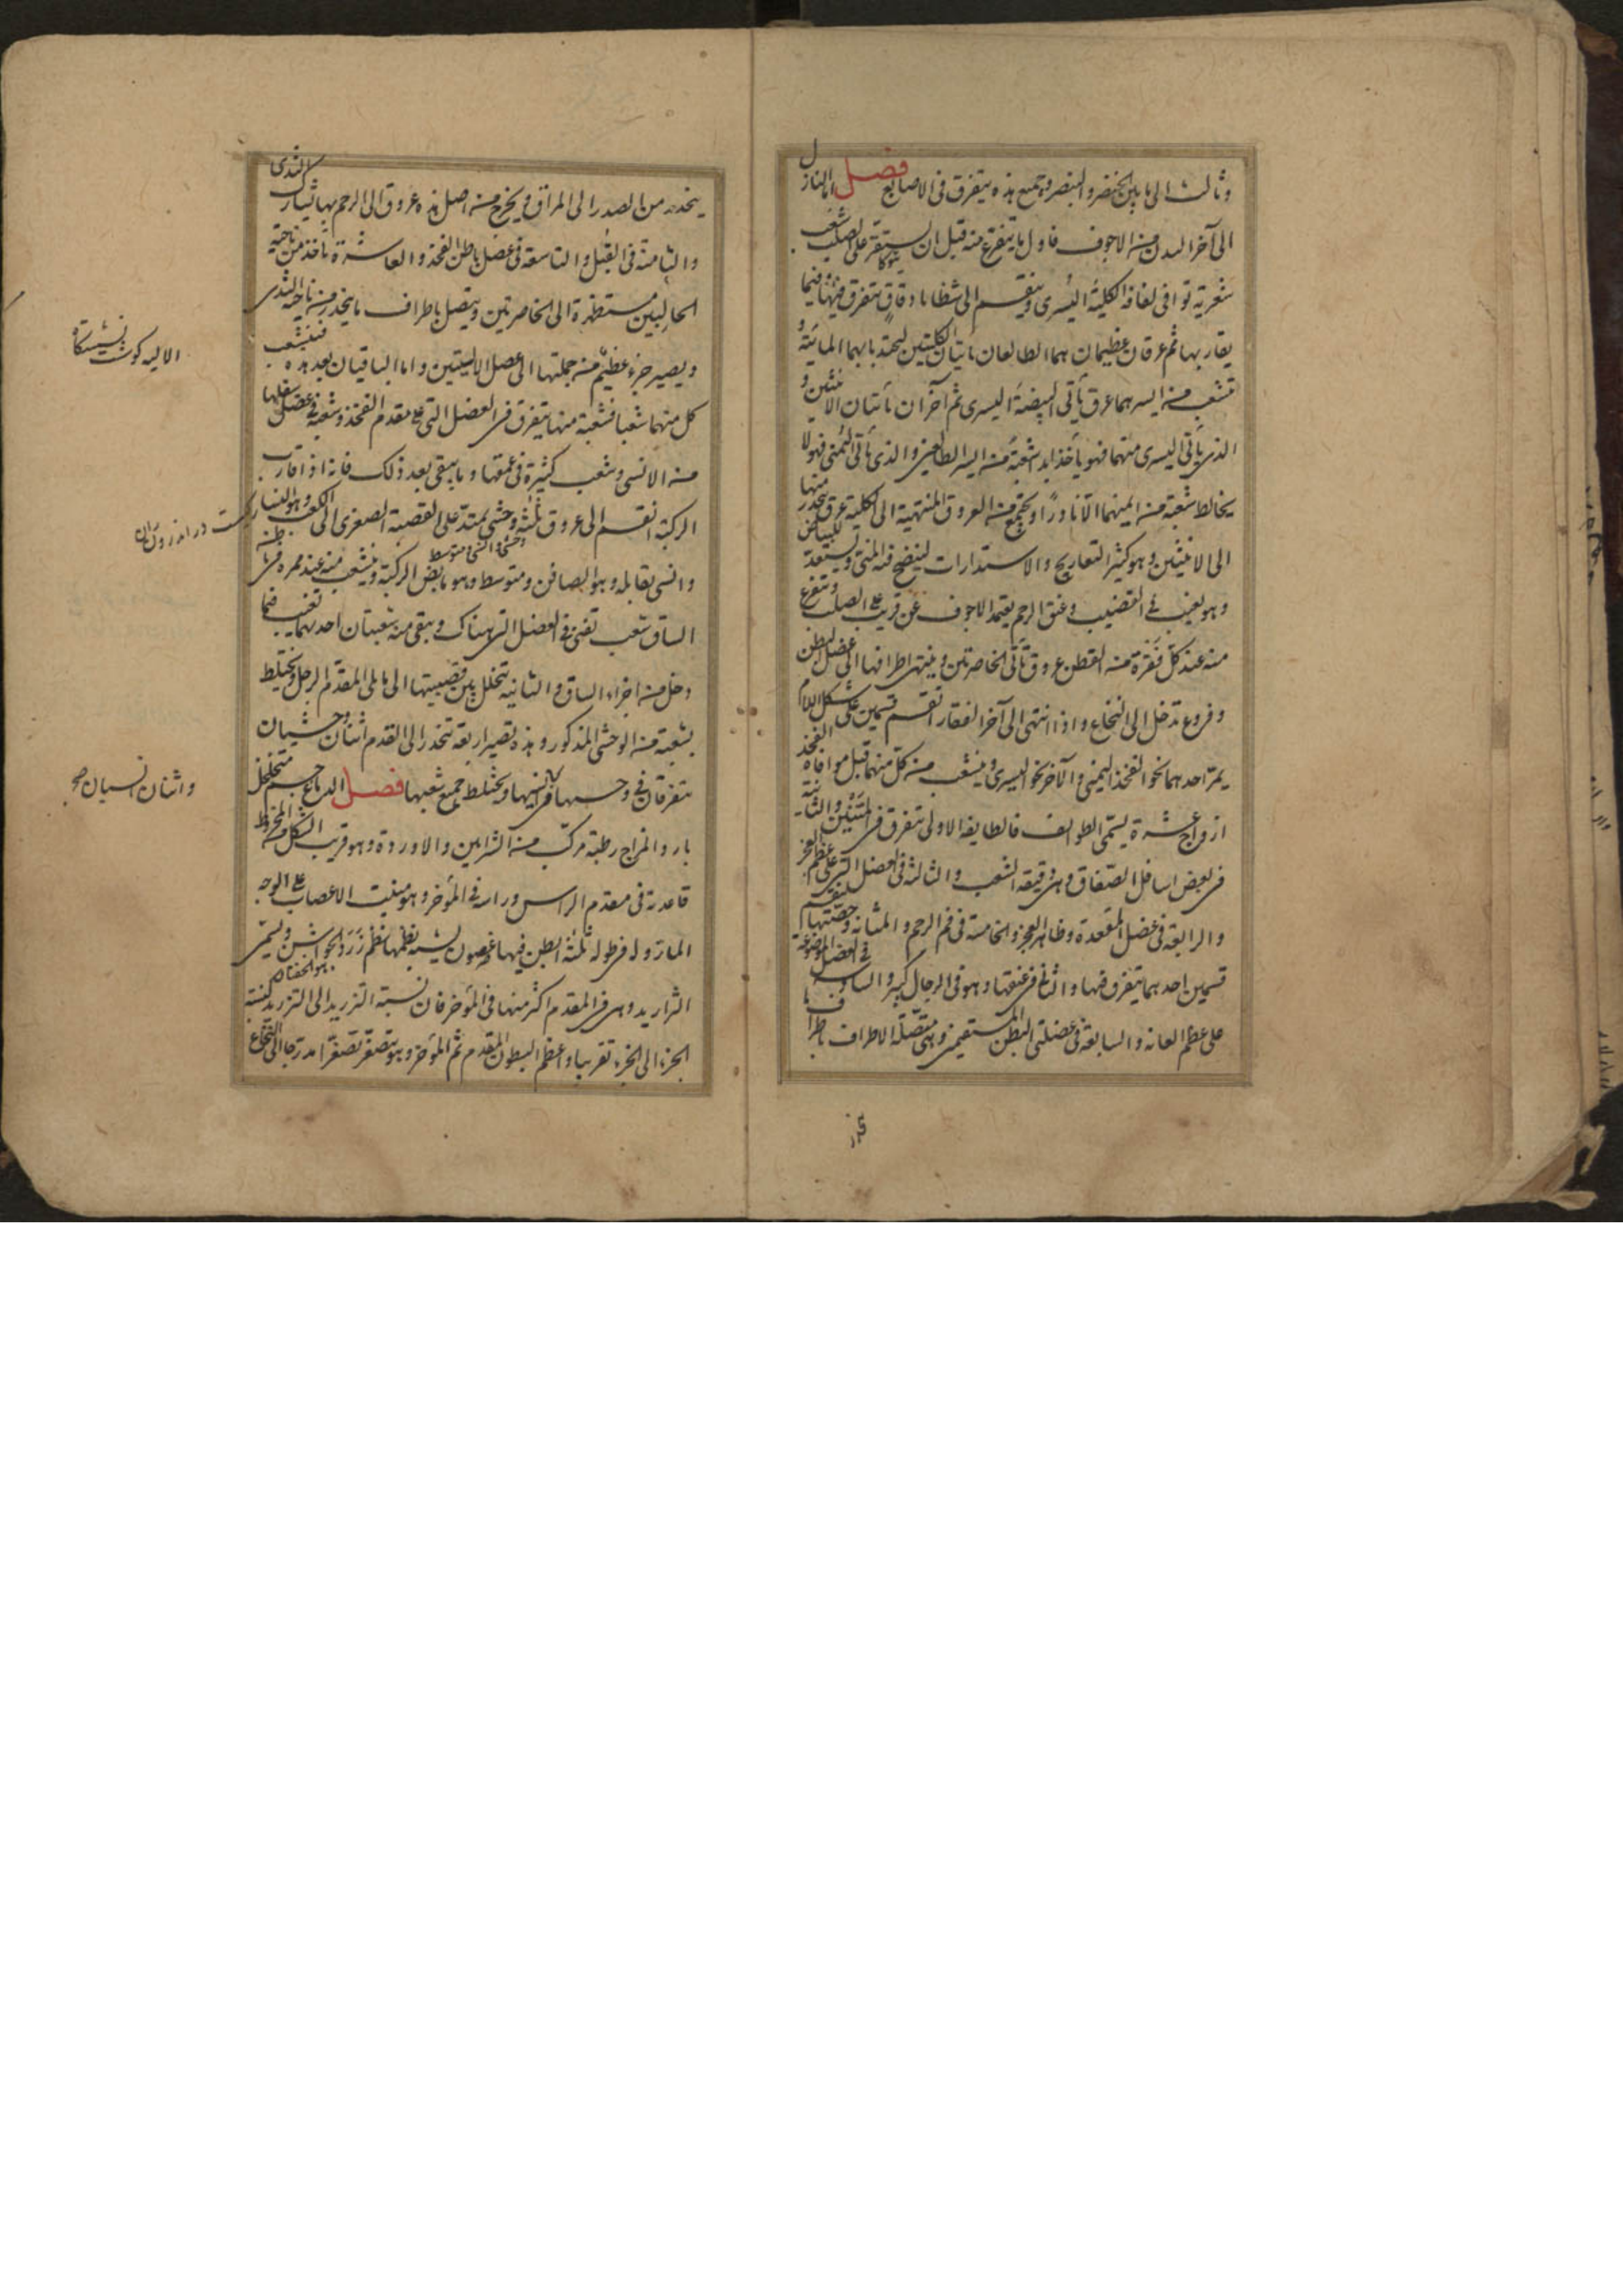 وثالث الى ما بين الخنصر والبنصر وجميع هذه يتفرق فى الاصابع فصل اما النازل
الى آخر البدن من الاجوف فاول ما يتفرع منه قبل ان يستقر على الصلب شعب
شعرية توافى لفافة الكلية اليسرى وينقسم الى شظايا دقاق تتفرق فيها وفيما
يقاربها ثم عرقان عظيمان هما الطالعان ياتيان الكليتين لتجتذبا بهما المائية و
تتشعب من ايسرهما عرق يأتى البيضة اليسرى ثم آخران يأتيان الانثيين و
الذى يأتى اليسرى منهما فهو يأخذ ابدا شعبة من ايسر الطالعين والذى يأتى اليمنى فهو لا
يخالط شعبة من ايمنهما الا نادرا ويجتمع من العروق المنتهية الى الكلية عرق ينحدر منها
الى الانثيين وهو كثير التعاريج والاستدارات لينضج فيه المنى ويستعد للبياض
وهو يغيب فى القضيب وعنق الرحم يعتمد الاجوف عن قريب على الصلب ويتفرع
منه عند كل فقرة من القطن عروق تأتى الخاصرتين وينتهى اطرافها الى عضل البطن
وفروع تدخل الى النخاع واذا انتهى الى آخر الفقار انقسم قسمين على شكل اللام
يمر احدهما نحو الفخذ اليمنى والآخر نحو اليسرى ويتشعب من كل منهما قبل موافاة الفخذ
ازواج عشرة يسمى الطوائف فالطايفة الاولى تتفرق فى المتنين والثانية
فى بعض اسافل الصفاق وهى دقيقة الشعب والثالثة فى العضل التى على عظم العجز
والرابعة فى عضل المقعدة وظاهر العجز والخامسة فى فم الرحم والمثانة وحصتها ينقسم
قسمين احدهما يتفرق فيها والثانى فى عنقها وهو فى الرجال كبير والسادسة فى العضل الموضوعة
على عظم العانة والسابعة فى عضلتى البطن المستقيمين وهى متصلة الاطراف باطراف ما
ينحدر من الصدر الى المراق ويخرج من اصل هذه عروق الى الرحم بها يشارك الثدى
والثامنة فى القبل والتاسعة فى عضل باطن الفخذ والعاشرة تأخذ من ناحية
الحالبين مستظهرة الى الخاصرتين ويتصل باطراف ما ينحدر من ناحية الثدى
ويصير جزء عظيم من جملتها الى عضل الاليتين واما الباقيان بعد هذه فيتشعب
كل منهما شعبا فشعبة منها يتفرق فى العضل التى على مقدم الفخذ وشعبة فى عضل سفلها
من الانسى وشعب كثيرة فى عمقها وما يبقى بعد ذلك فانه اذا قارب
الركبة انقسم الى عروق ثلثة وحشى يمتد على القصبة الصغرى الى الكعب وهو النسا
وحشى وانسى ومتوسط
وانسى يقابله وهو الصافن ومتوسط وهو مابض الركبة ويتشعب منه عند ممره فى باطن
الساق شعب تفنى فى العضل التى هناك ويبقى منه شعبتان احدهما تغيب فيما
دخل من اجزاء الساق والثانية تتخلل بين قصبيتها الى ما يلى المقدم الرجل ويختلط
بشعبة من الوحشى المذكور وهذه تصير اربعة تنحدر الى القدم اثنان وحشيان
يتفرقان فى وحشيها فى انسيها ويختلط جميع شعبها فصل الدماغ جسم متخلخل
بارد المزاج رطبه مركب من الشرايين والاوردة وهو قريب الشكل من المخروط
قاعدته فى مقدم الراس وراسه فى المؤخر وهو منبت الاعصاب على الوجه
المار وله فى طوله ثلثة ابطن فيها غضون يشبه نظمها نظم زرد الجواشن ويسمى
هو الخفتان
التزاريد وهى فى المقدم اكثر منها فى المؤخر فان نسبة التزريد الى التزريد كنسبة
الجزء الى الجزء تقريبا واعظم البطون المقدم ثم المؤخر وهو يتصغر تصغرا مدرجا الى النخاع
الاليه كوشت نشستگاه
واثنان انسيان صح